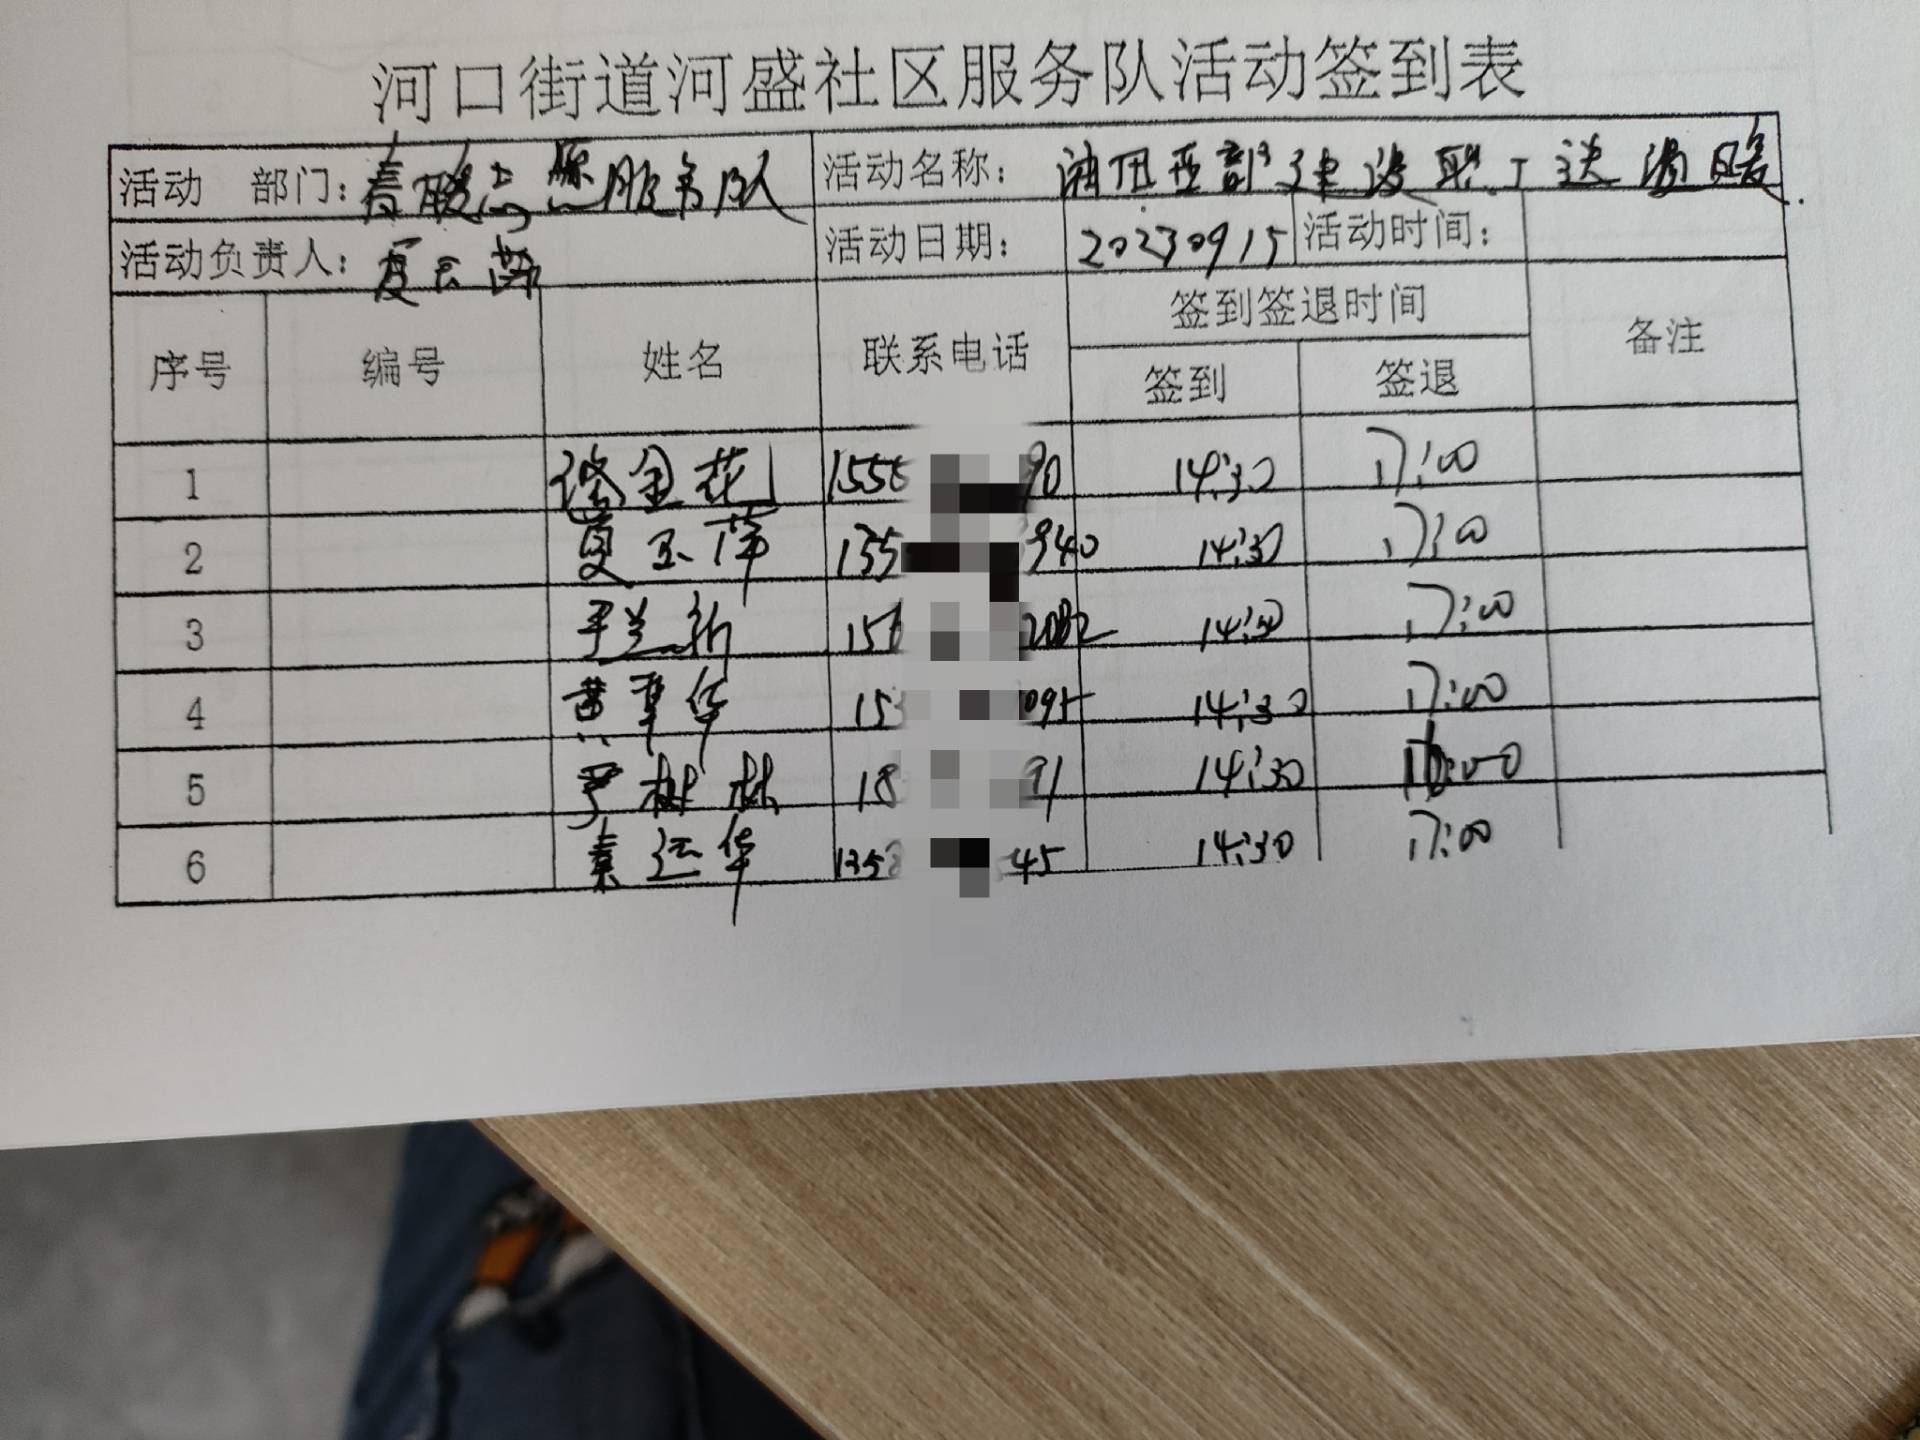 河口街道河盛社区服务队活动签到表
活动 部门：春暖志愿服务队 活动名称：油田西部建设职工送温暖.
活动负责人：夏 活动日期：20230915 活动时间：
序号 编号 姓名 联系电话 签到签退时间 备注
签到 签退
1 徐金花 1556 90 14:30 17:00
2 夏玉萍 135 940 14:30 17:00
3 兰新 156 2082 14:30 17:00
4 黄翠华 15 095 14:30 17:00
5 严树林 18 91 14:30 :00
6 秦运华 1358 545 14:30 17:00